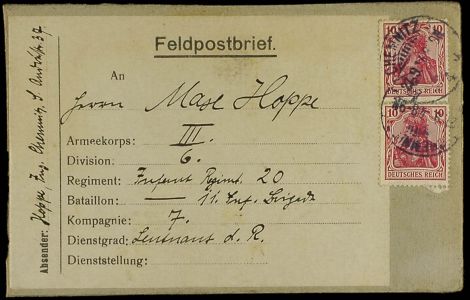 Feldpostbrief.
An
Herrn Max Hoppe
Armeekorps: III.
Division: 6.
Regiment: Infant. Regimt. 20
Bataillon: — 11. Inf. Brigade
Kompagnie: 7.
Dienstgrad: Leutnant d. R.
Dienststellung:
Absender: Hoppe, Ing. Chemnitz, S. Andréstr 37.
10 10
DEUTSCHES REICH
10 10
DEUTSCHES REICH
CHEMNITZ